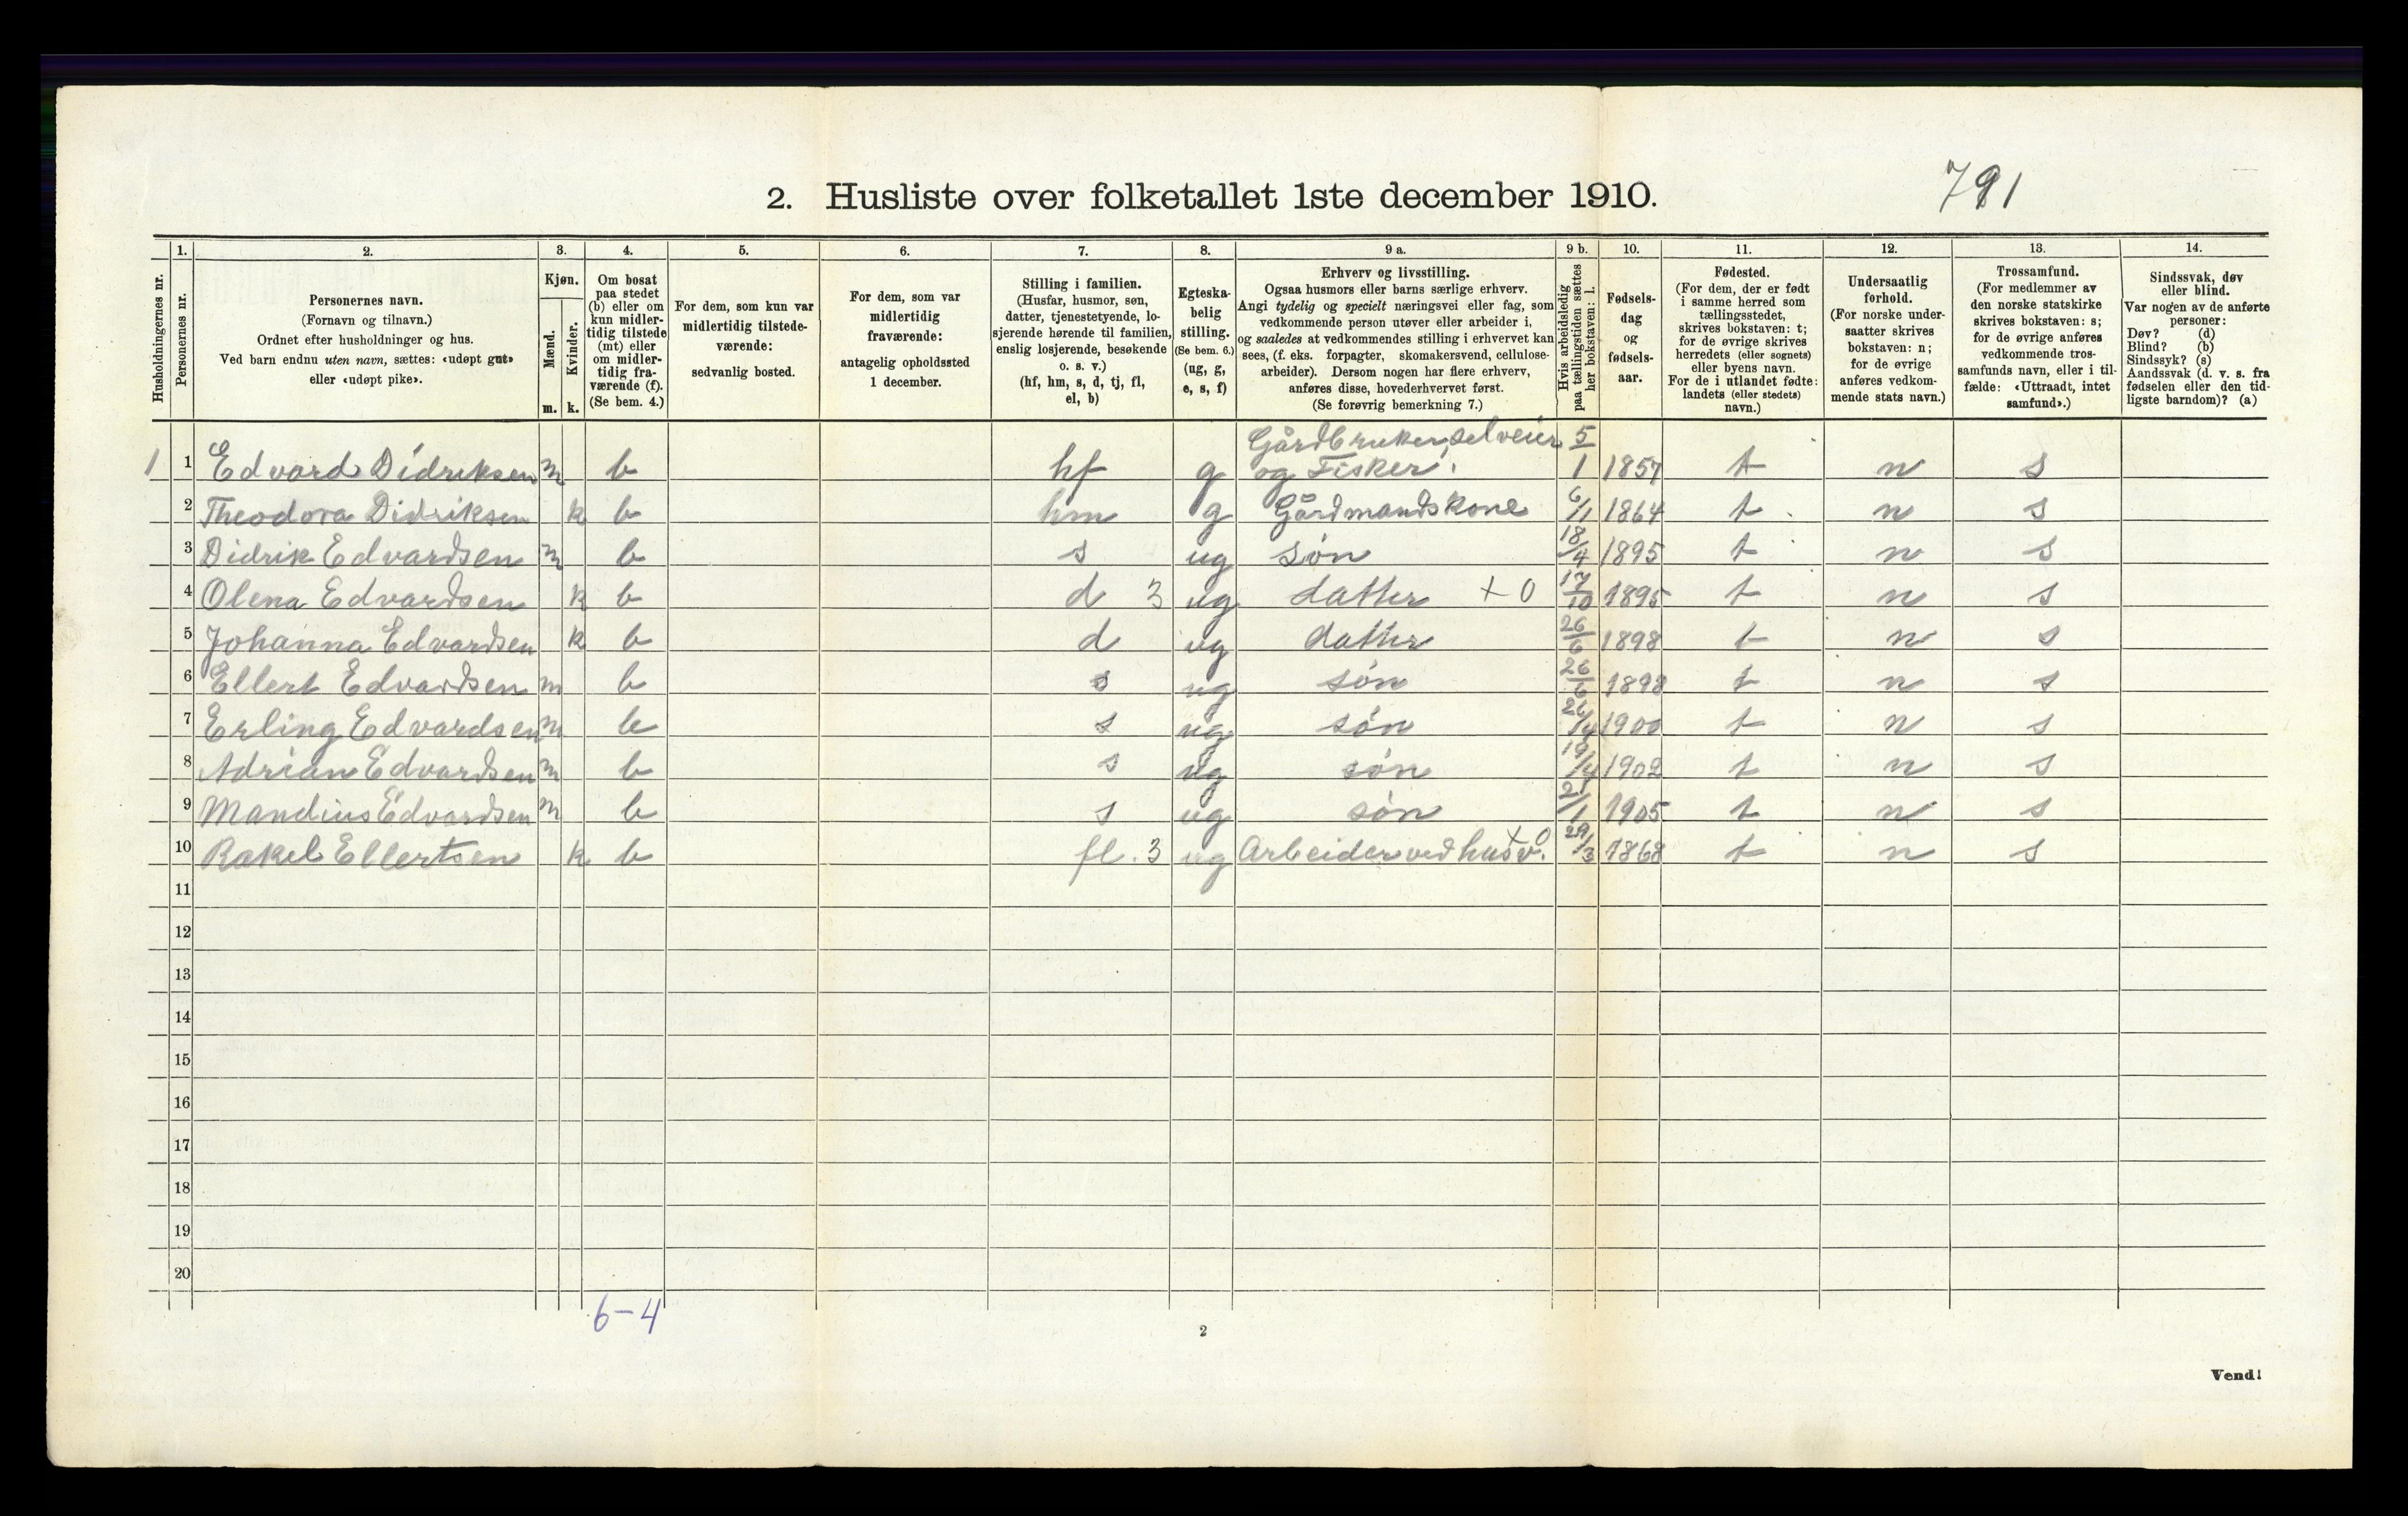 791
2. Husliste over folketallet 1ste december 1910.
1. 2. 3. 4. 5. 6. 7. 8. 9 a. 9 b. 10. 11. 12. 13. 14.
Husholdningernes nr.
Personernes nr.
Personernes navn.
(Fornavn og tilnavn.)
Ordnet efter husholdninger og hus.
Ved barn endnu uten navn, sættes: «udøpt gut»
eller «udøpt pike».
Kjøn.
Mænd.
Kvinder.
m. k.
Om bosat
paa stedet
(b) eller om
kun midler-
tidig tilstede
(mt) eller
om midler-
tidig fra-
værende (f).
(Se bem. 4.)
For dem, som kun var
midlertidig tilstede-
værende:
sedvanlig bosted.
For dem, som var
midlertidig
fraværende:
antagelig opholdssted
1 december.
Stilling i familien.
(Husfar, husmor, søn,
datter, tjenestetyende, lo-
sjerende hørende til familien,
enslig losjerende, besøkende
o. s. v.)
(hf, hm, s, d, tj, fl,
el, b)
Egteska-
belig
stilling.
(Se bem. 6.)
(ug, g,
e, s, f)
Erhverv og livsstilling.
Ogsaa husmors eller barns særlige erhverv.
Angi tydelig og specielt næringsvei eller fag, som
vedkommende person utøver eller arbeider i,
og saaledes at vedkommendes stilling i erhvervet kan
sees, (f. eks. forpagter, skomakersvend, cellulose-
arbeider). Dersom nogen har flere erhverv,
anføres disse, hovederhvervet først.
(Se forøvrig bemerkning 7.)
Hvis arbeidsledig
paa tællingstiden sættes
her bokstaven: l.
Fødsels-
dag
og
fødsels-
aar.
Fødested.
(For dem, der er født
i samme herred som
tællingsstedet,
skrives bokstaven: t;
for de øvrige skrives
herredets (eller sognets)
eller byens navn.
For de i utlandet fødte:
landets (eller stedets)
navn.)
Undersaatlig
forhold.
(For norske under-
saatter skrives
bokstaven: n;
for de øvrige
anføres vedkom-
mende stats navn.)
Trossamfund.
(For medlemmer av
den norske statskirke
skrives bokstaven: s;
for de øvrige anføres
vedkommende tros-
samfunds navn, eller i til-
fælde: «Uttraadt, intet
samfund».)
Sindssvak, døv
eller blind.
Var nogen av de anførte
personer:
Døv? (d)
Blind? (b)
Sindssyk? (s)
Aandssvak (d. v. s. fra
fødselen eller den tid-
ligste barndom)? (a)
1 1 Edvard Didriksen m b hf g Gårdbruker, selveier og Fisker. 5/1 1857 t n s
2 Theodora Didriksen k b hm g Gårdmandskone 6/11 1864 t n s
3 Didrik Edvardsen m b s ug søn 18/4 1895 t n s
4 Olena Edvardsen k b d 3 ug datter + 0 17/10 1895 t n s
5 Johanna Edvardsen k b d ug datter 26/6 1898 t n s
6 Ellert Edvardsen m b s ug søn 26/6 1898 t n s
7 Erling Edvardsen m b s ug søn 26/4 1900 t n s
8 Adrian Edvardsen m b s ug søn 19/4 1902 t n s
9 Mandius Edvardsen m b s ug søn 1905 t n s
10 Rakel Ellertsen k b fl. 3 ug Arbeider ved husv. + 0 29/3 1868 t n s
11
12
13
14
15
16
17
18
19
20
6-4
2
Vend!